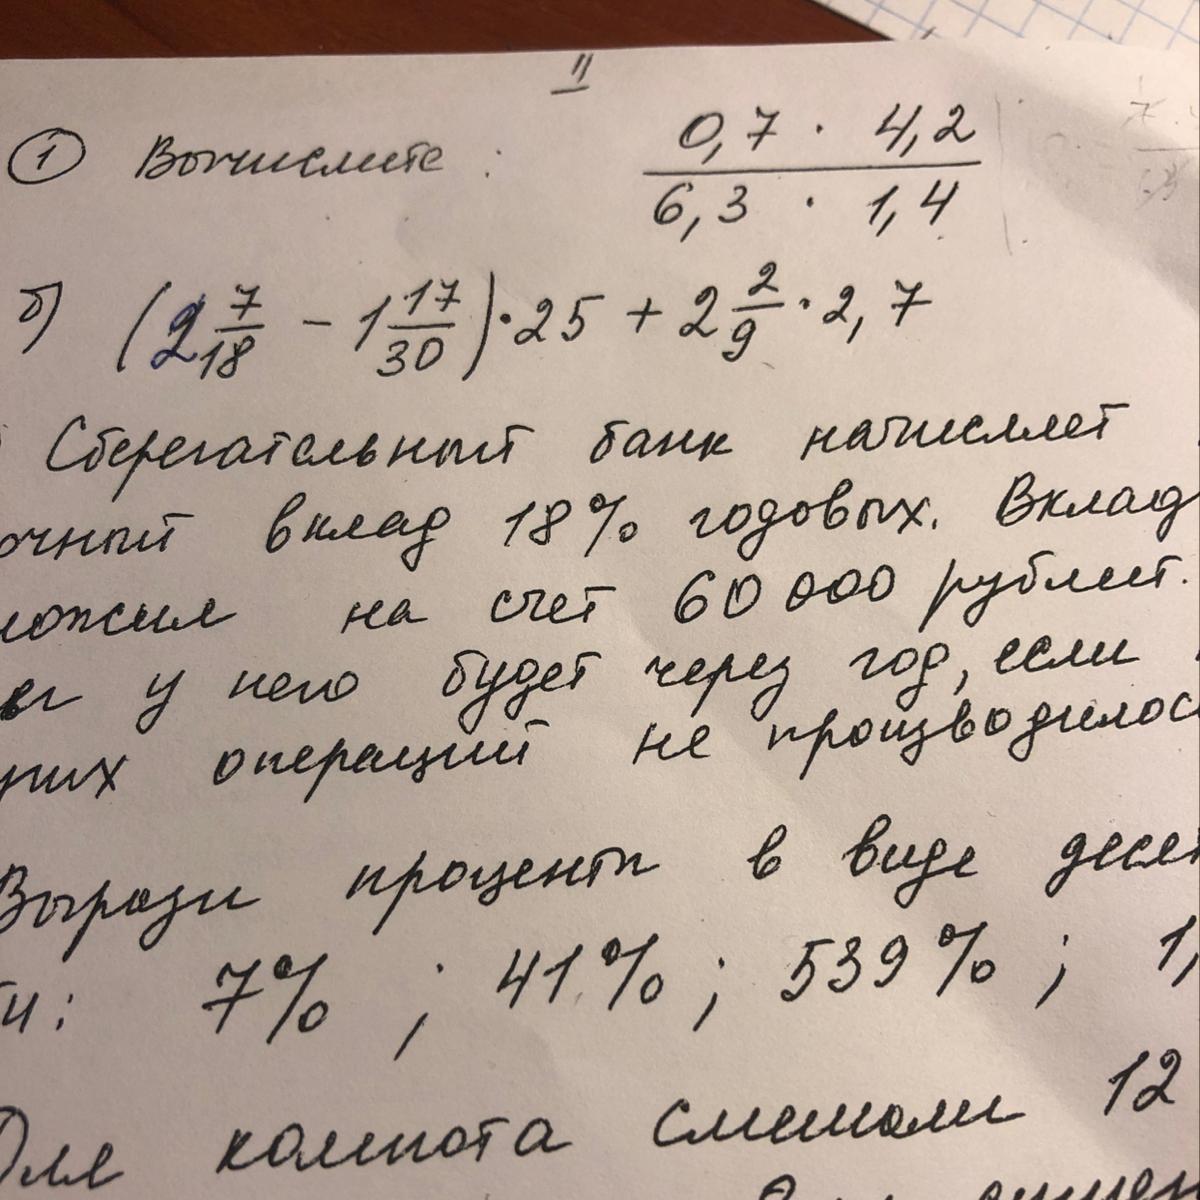 II
① Вычислите: 0,7 · 4,2 / 6,3 · 1,4
б) (2 7/18 - 1 17/30) · 25 + 2 2/9 · 2,7
Сберегательный банк начисляет
очный вклад 18% годовых. Вклад
ложил на счет 60 000 рублей.
ег у него будет через год, если
ких операций не производилос
Вырази проценты в виде десят
и: 7% ; 41% ; 539% ; 1,
Для компота смешали 12